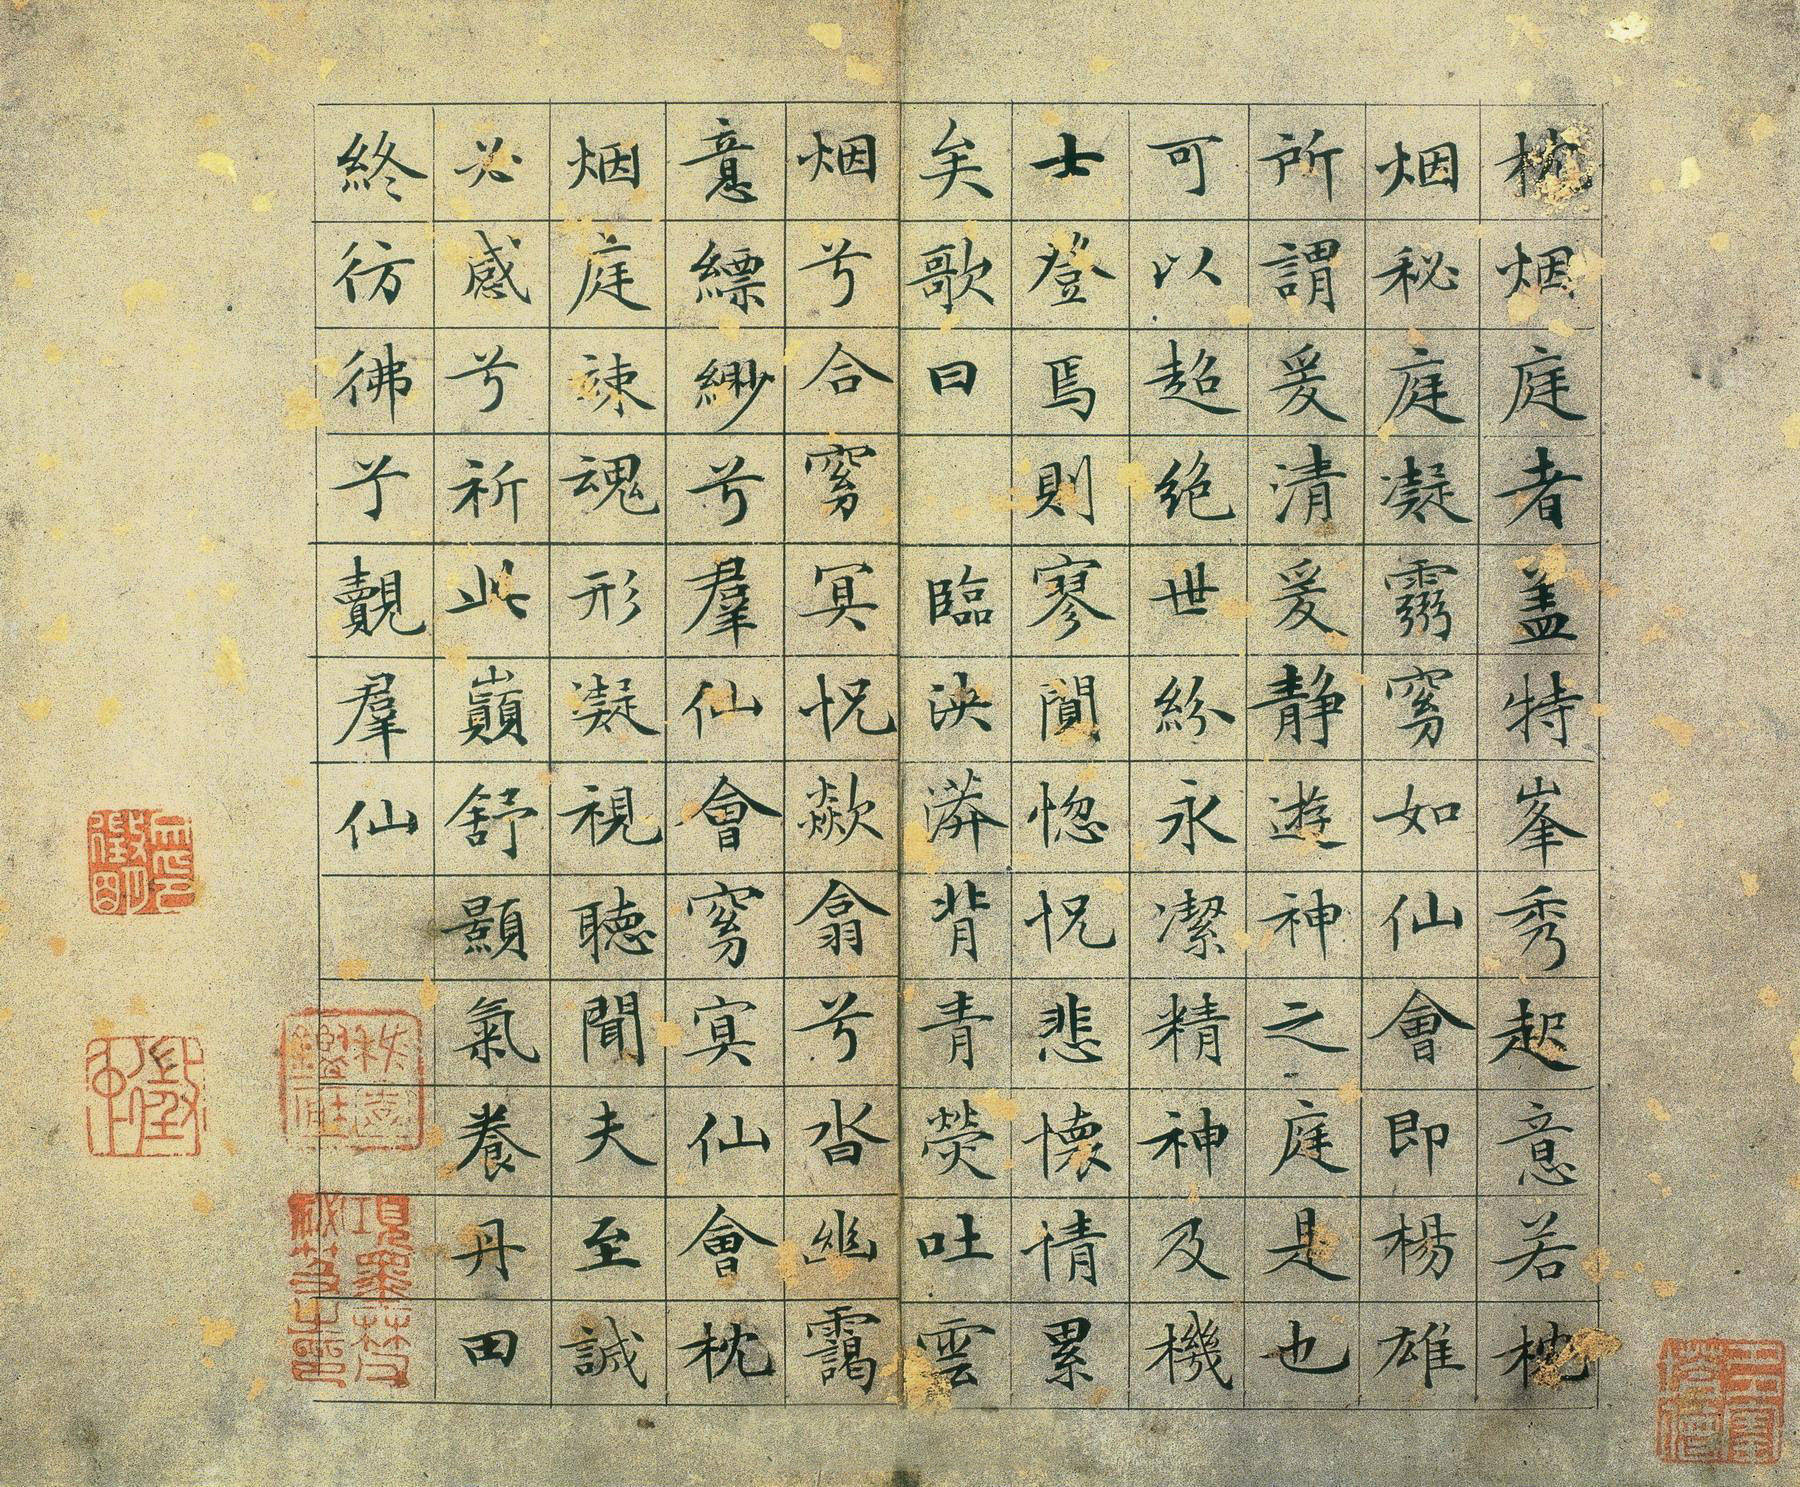 枕烟庭者盖特峯秀起意若枕
烟秘庭凝靈窅如仙會即楊雄
所謂爰清爰静遊神之庭是也
可以超絶世紛永潔精神及機
士登焉則寥闃惚怳悲懷情累
矣歌曰 臨泱漭背青熒吐雲
烟兮合窅冥怳歘翕兮沓幽靄
意縹緲兮羣仙會窅冥仙會枕
烟庭竦魂形凝視聽聞夫至誠
必感兮祈此巔舒顥氣養丹田
終彷彿兮覿羣仙
項墨林父祕笈之印